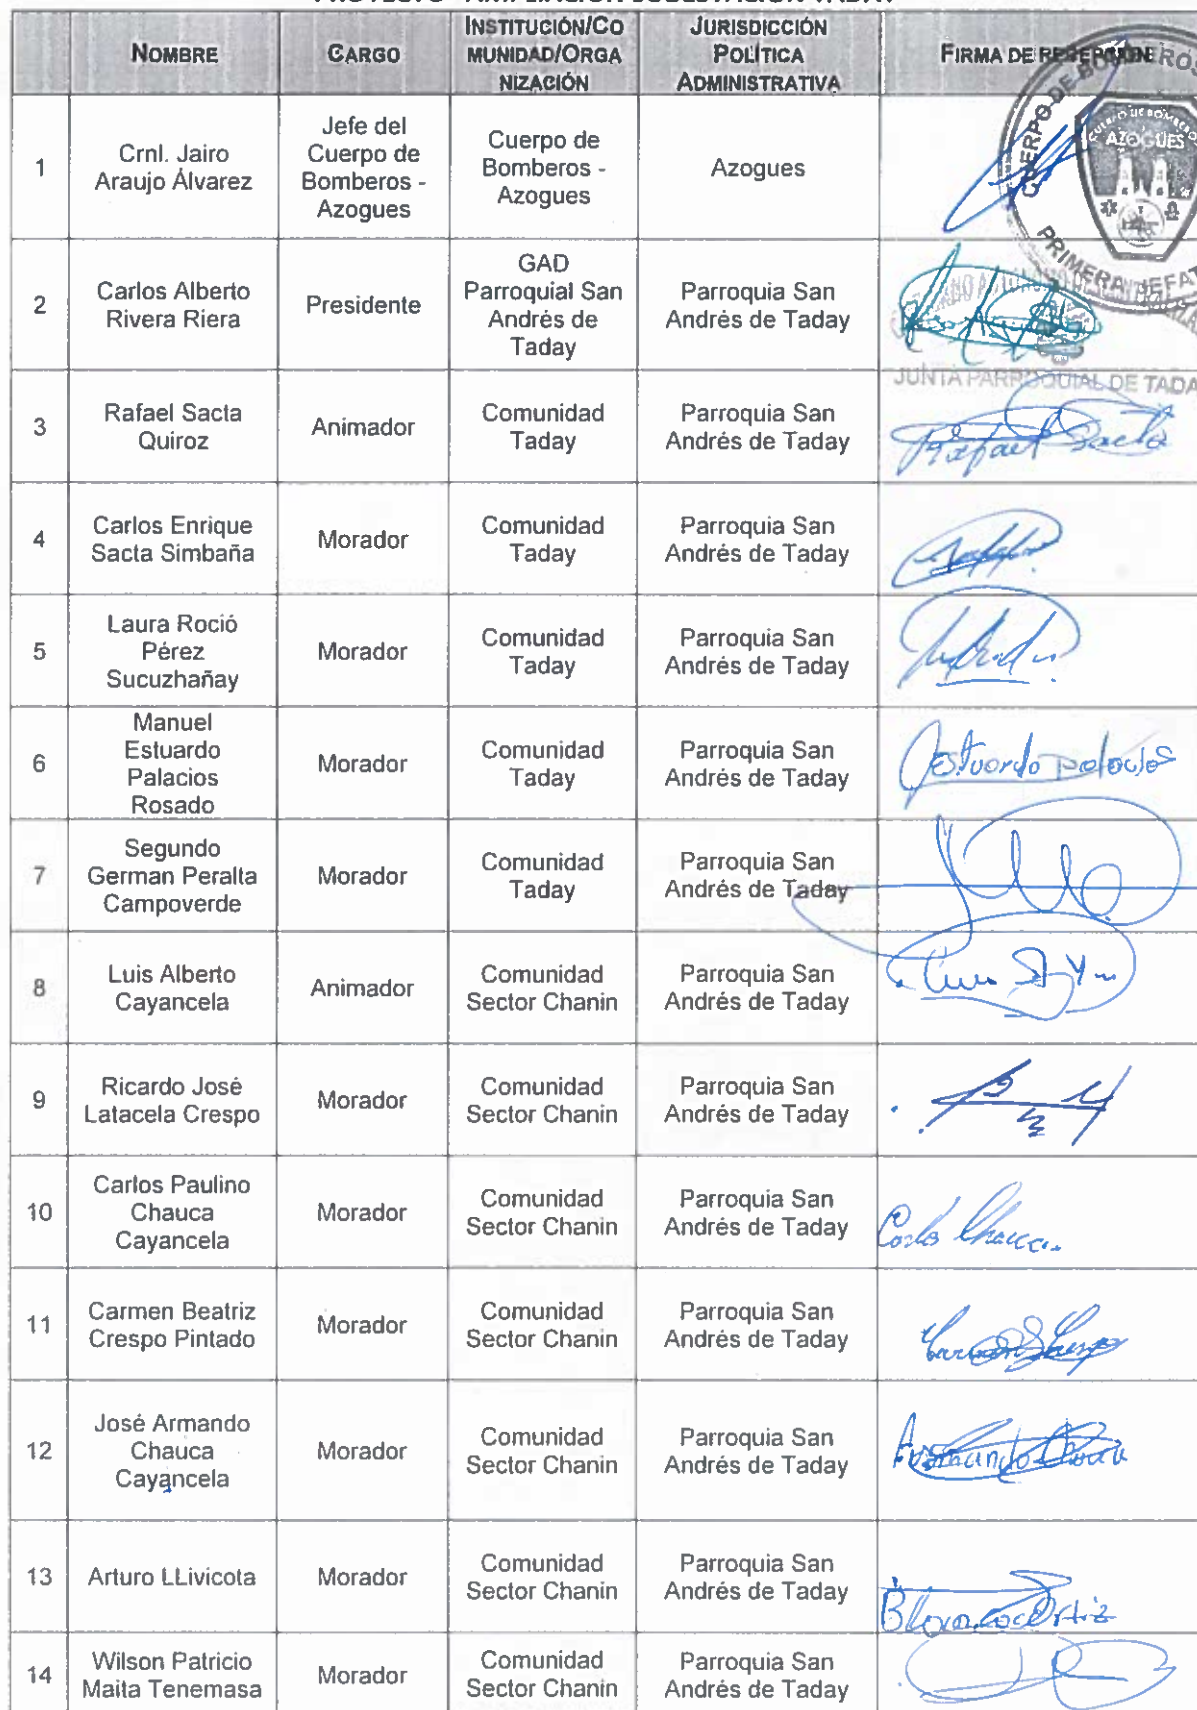 NOMBRE
CARGO
INSTITUCIÓN/CO
MUNIDAD/ORGA
NIZACIÓN
JURISDICCIÓN
POLÍTICA
ADMINISTRATIVA
FIRMA DE RECEPCIÓN
1
Crnl. Jairo
Araujo Álvarez
Jefe del
Cuerpo de
Bomberos -
Azogues
Cuerpo de
Bomberos -
Azogues
Azogues
CUERPO DE BOMBEROS
AZOGUES
PRIMERA JEFAT
2
Carlos Alberto
Rivera Riera
Presidente
GAD
Parroquial San
Andrés de
Taday
Parroquia San
Andrés de Taday
JUNTA PARROQUIAL DE TADA
3
Rafael Sacta
Quiroz
Animador
Comunidad
Taday
Parroquia San
Andrés de Taday
Rafael Sacta
4
Carlos Enrique
Sacta Simbaña
Morador
Comunidad
Taday
Parroquia San
Andrés de Taday
5
Laura Roció
Pérez
Sucuzhañay
Morador
Comunidad
Taday
Parroquia San
Andrés de Taday
6
Manuel
Estuardo
Palacios
Rosado
Morador
Comunidad
Taday
Parroquia San
Andrés de Taday
Estuardo Palacios
7
Segundo
German Peralta
Campoverde
Morador
Comunidad
Taday
Parroquia San
Andrés de Taday
8
Luis Alberto
Cayancela
Animador
Comunidad
Sector Chanin
Parroquia San
Andrés de Taday
9
Ricardo José
Latacela Crespo
Morador
Comunidad
Sector Chanin
Parroquia San
Andrés de Taday
10
Carlos Paulino
Chauca
Cayancela
Morador
Comunidad
Sector Chanin
Parroquia San
Andrés de Taday
Carlos Chauca
11
Carmen Beatriz
Crespo Pintado
Morador
Comunidad
Sector Chanin
Parroquia San
Andrés de Taday
12
José Armando
Chauca
Cayancela
Morador
Comunidad
Sector Chanin
Parroquia San
Andrés de Taday
Armando Chauca
13
Arturo LLivicota
Morador
Comunidad
Sector Chanin
Parroquia San
Andrés de Taday
Blanca Ortiz
14
Wilson Patricio
Maita Tenemasa
Morador
Comunidad
Sector Chanin
Parroquia San
Andrés de Taday